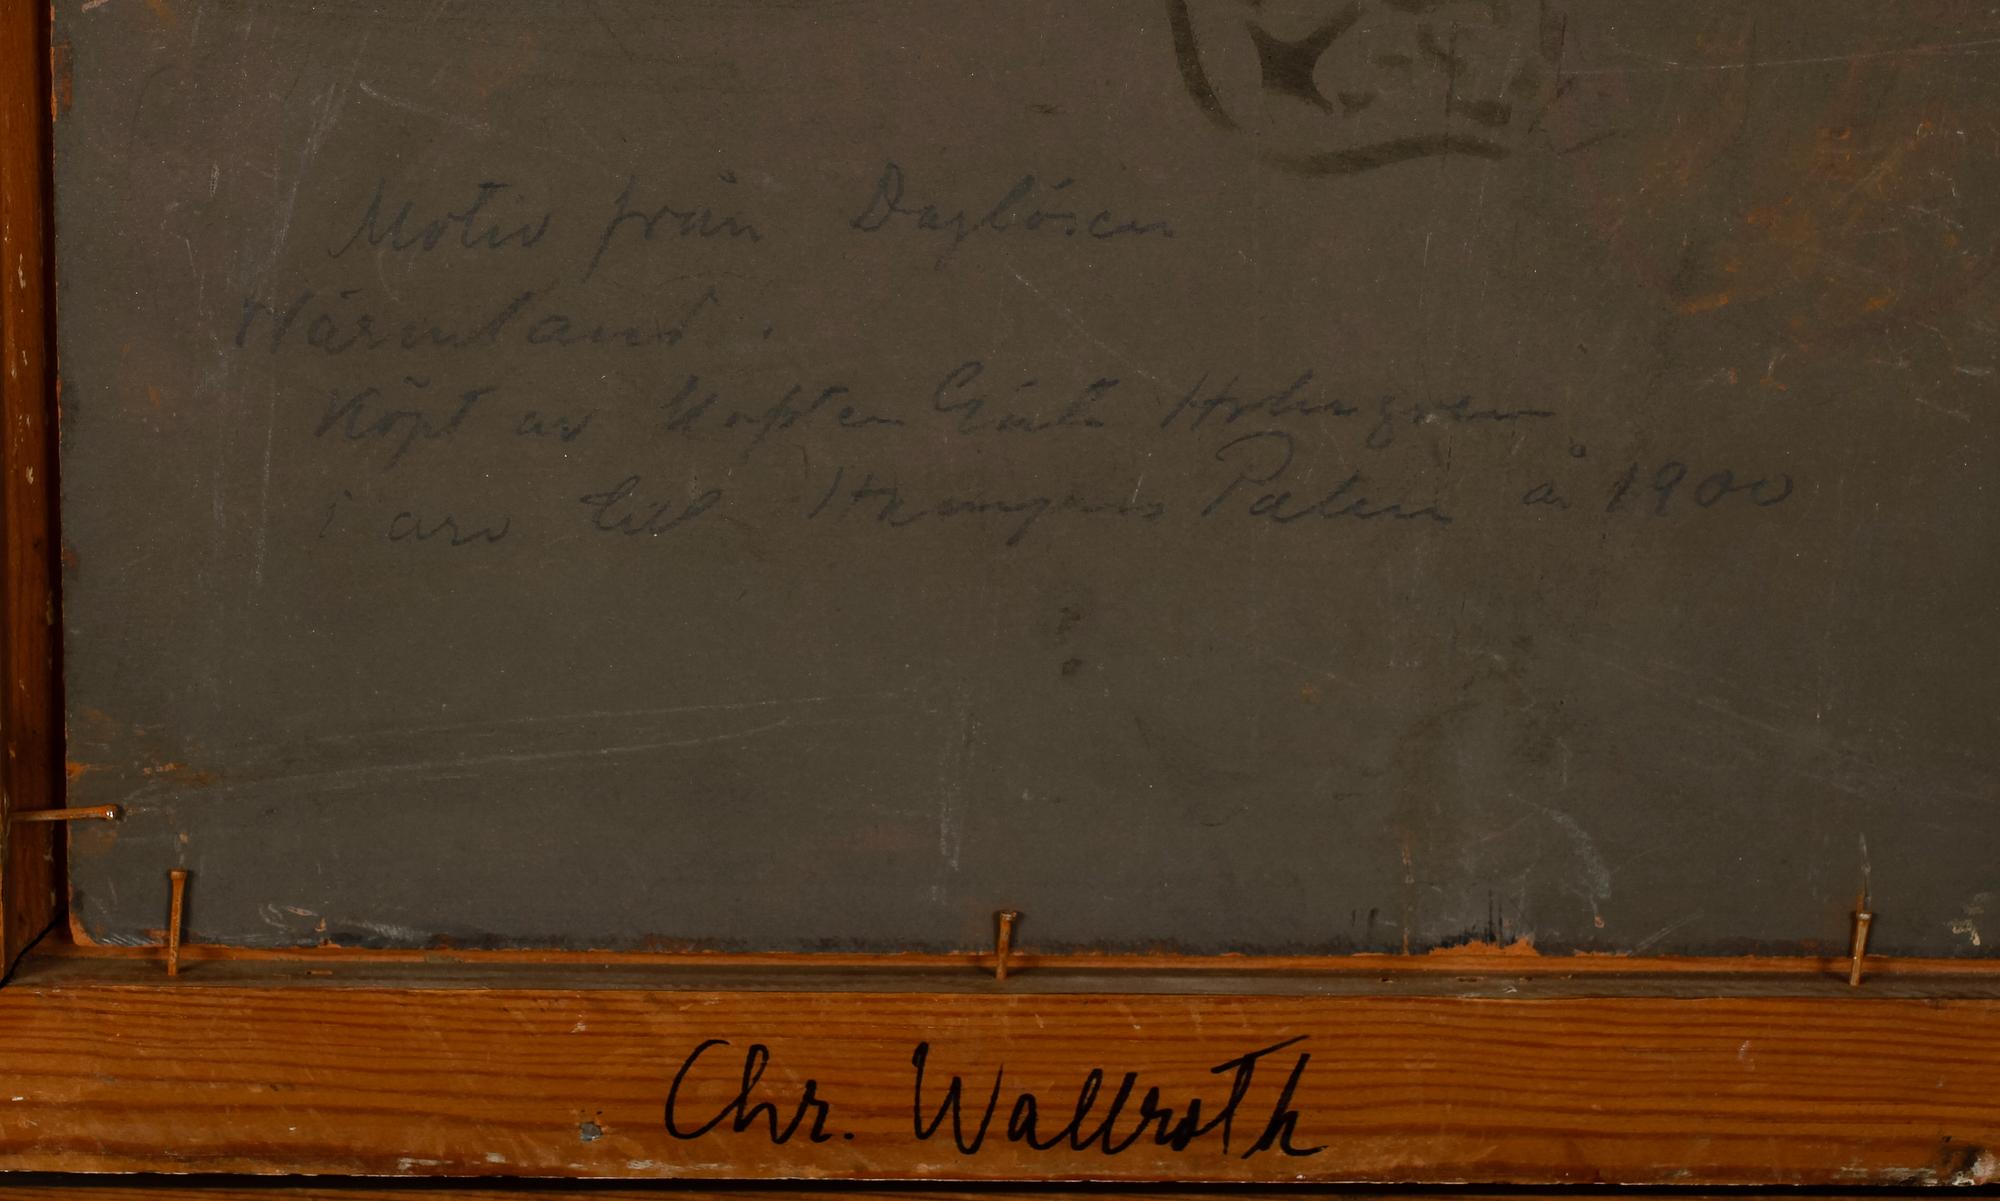 Motiv från Daglösen
Wärmland.
Köpt av Kapten Holmgren
i arv till år 1900
Chr. Wallroth